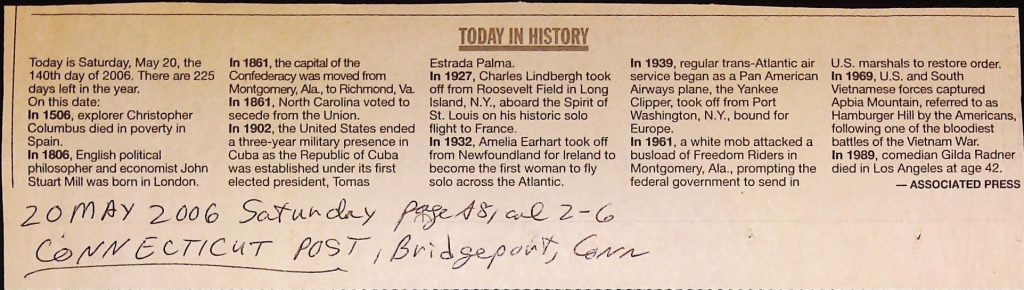 TODAY IN HISTORY
Today is Saturday, May 20, the
140th day of 2006. There are 225
days left in the year.
On this date:
In 1506, explorer Christopher
Columbus died in poverty in
Spain.
In 1806, English political
philosopher and economist John
Stuart Mill was born in London.
In 1861, the capital of the
Confederacy was moved from
Montgomery, Ala., to Richmond, Va.
In 1861, North Carolina voted to
secede from the Union.
In 1902, the United States ended
a three-year military presence in
Cuba as the Republic of Cuba
was established under its first
elected president, Tomas
Estrada Palma.
In 1927, Charles Lindbergh took
off from Roosevelt Field in Long
Island, N.Y., aboard the Spirit of
St. Louis on his historic solo
flight to France.
In 1932, Amelia Earhart took off
from Newfoundland for Ireland to
become the first woman to fly
solo across the Atlantic.
In 1939, regular trans-Atlantic air
service began as a Pan American
Airways plane, the Yankee
Clipper, took off from Port
Washington, N.Y., bound for
Europe.
In 1961, a white mob attacked a
busload of Freedom Riders in
Montgomery, Ala., prompting the
federal government to send in
U.S. marshals to restore order.
In 1969, U.S. and South
Vietnamese forces captured
Apbia Mountain, referred to as
Hamburger Hill by the Americans,
following one of the bloodiest
battles of the Vietnam War.
In 1989, comedian Gilda Radner
died in Los Angeles at age 42.
— ASSOCIATED PRESS
20 MAY 2006 Saturday page A8, col 2-6
CONNECTICUT POST, Bridgeport, Conn